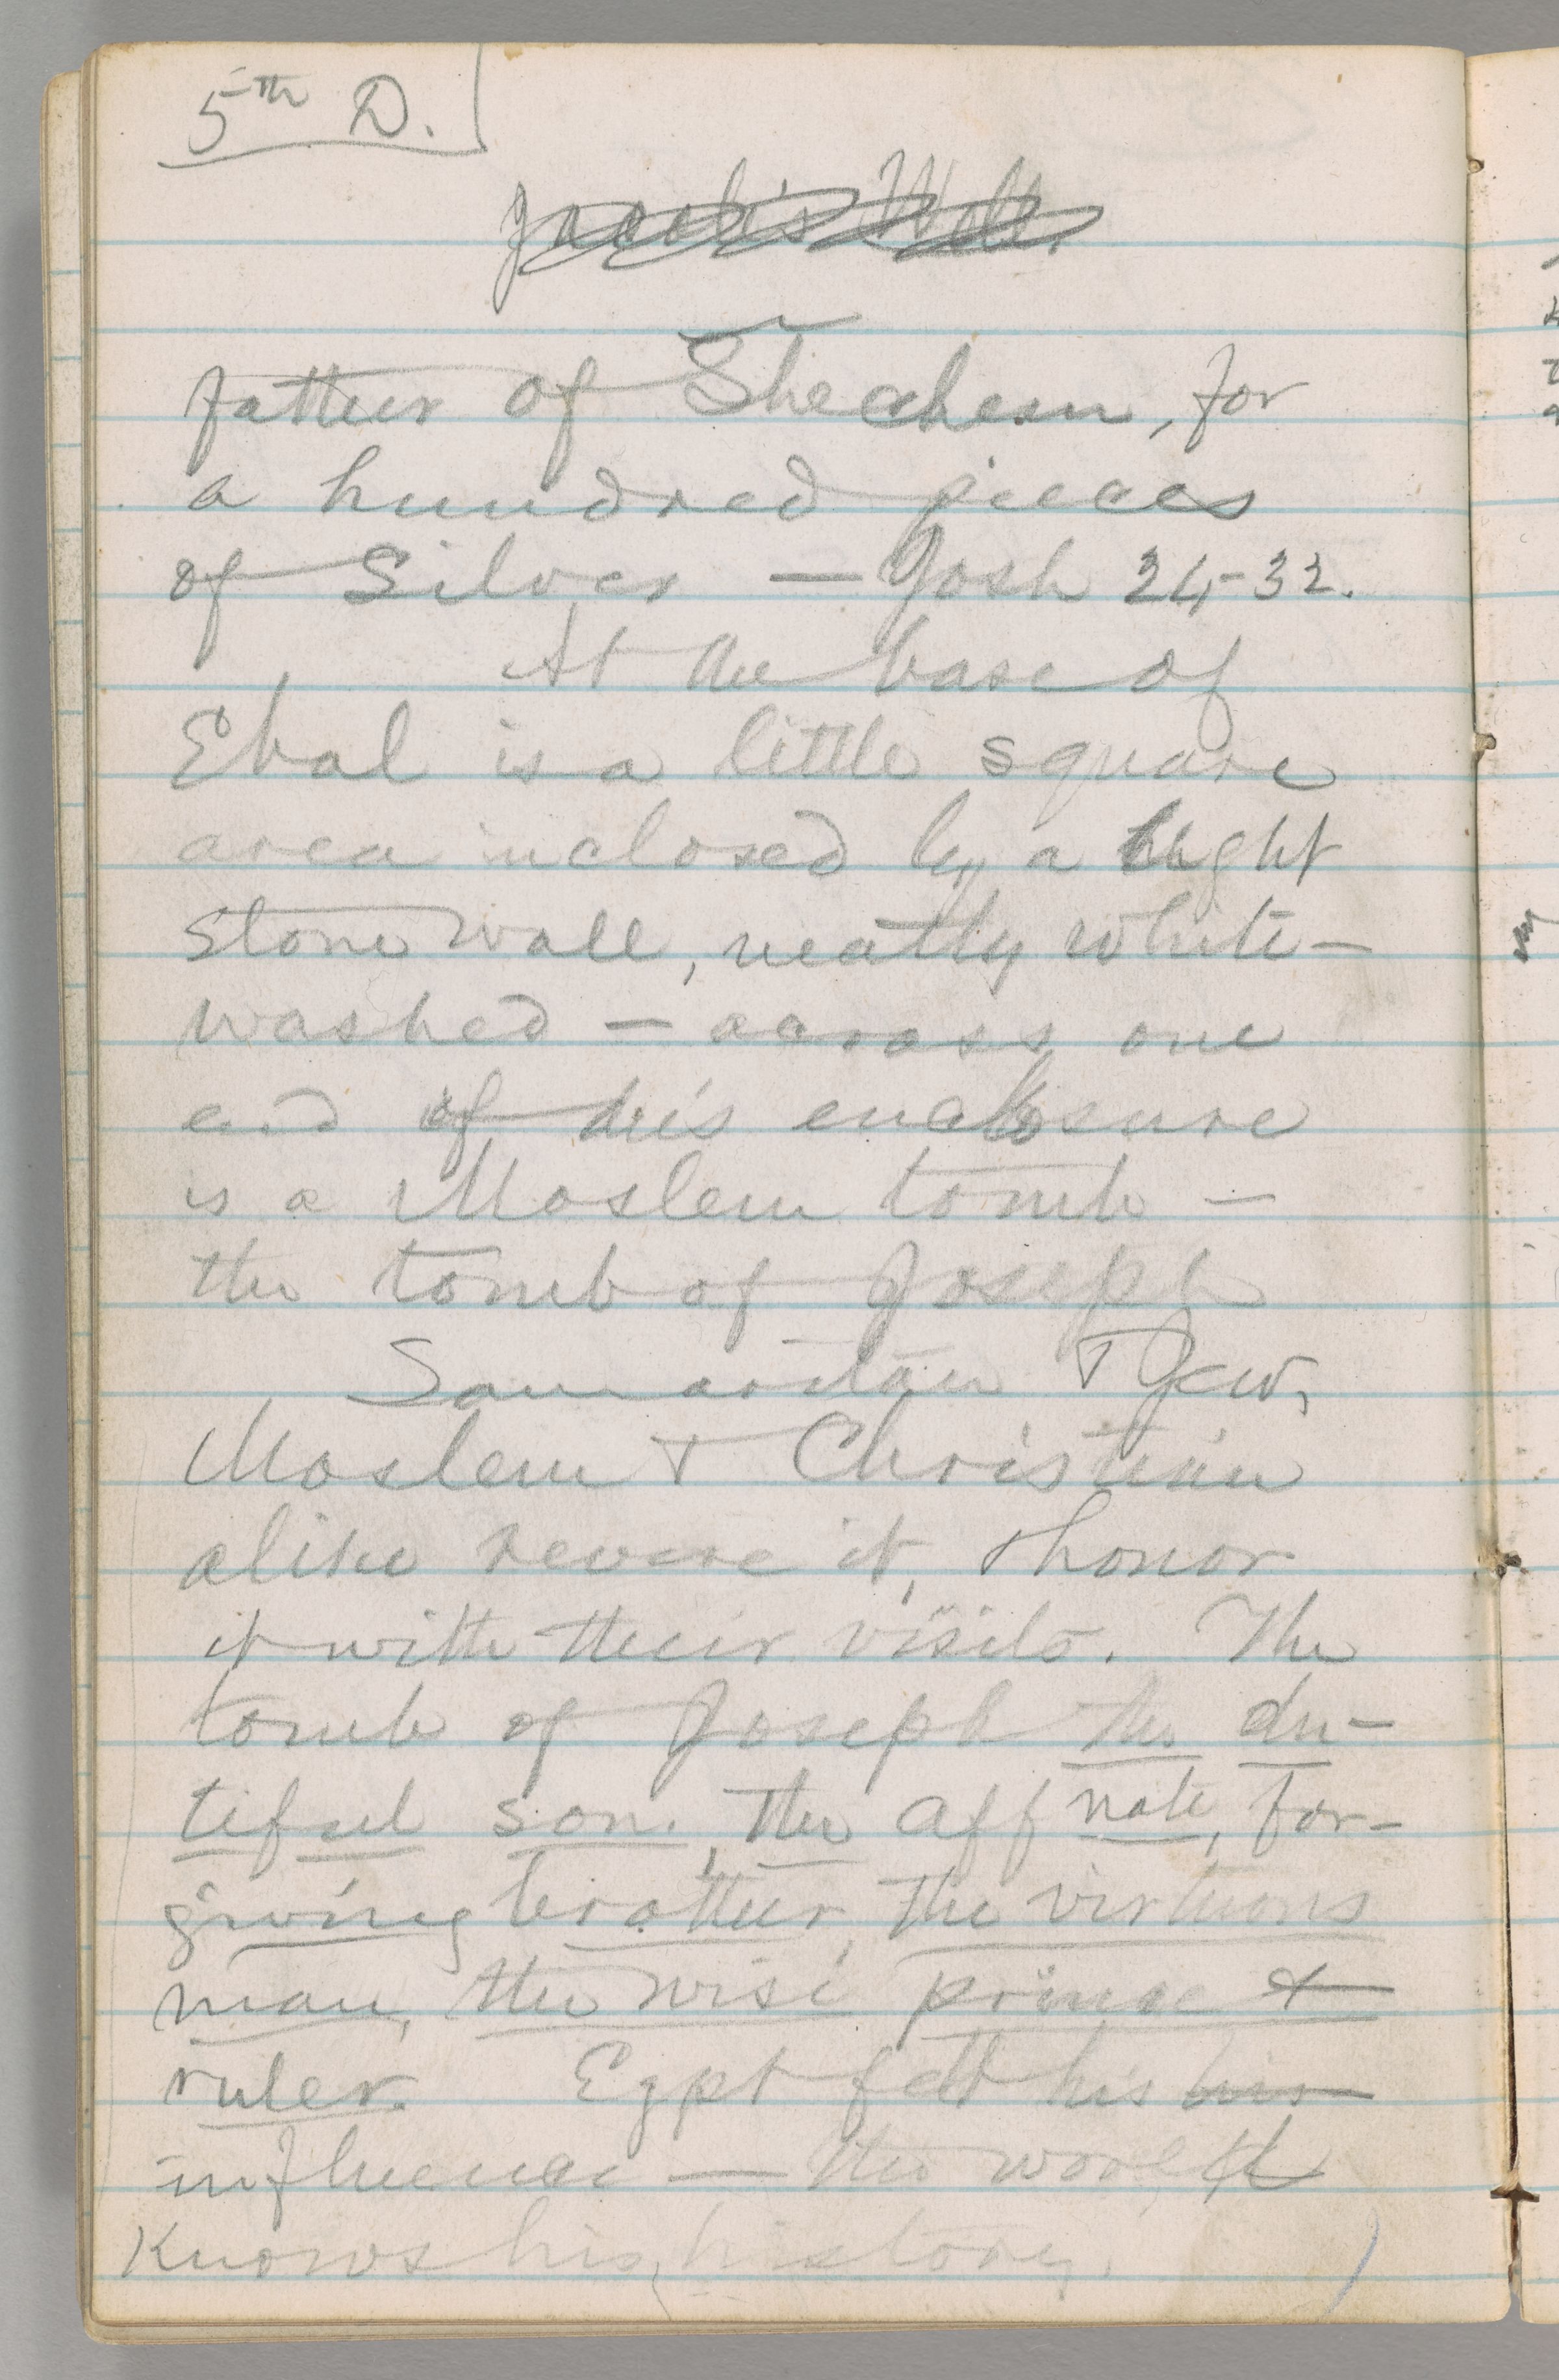 5th D.
Jacob's Well.
father of Shechem, for
a hundred pieces
of Silver — Josh 24-32.
At the base of
Ebal is a little square
area inclosed by a light
stone wall, neatly white-
washed — across one
end of this enclosure
is a Moslem tomb —
the tomb of Joseph
Samaritan & Jew,
Moslem & Christian
alike revere it, & honor
it with their visits. The
tomb of Joseph the du-
tiful son, the aff nate, for-
giving brother, the virtuous
man, the wise prince &
ruler. Egpt felt his his
influence — the world
knows his history.